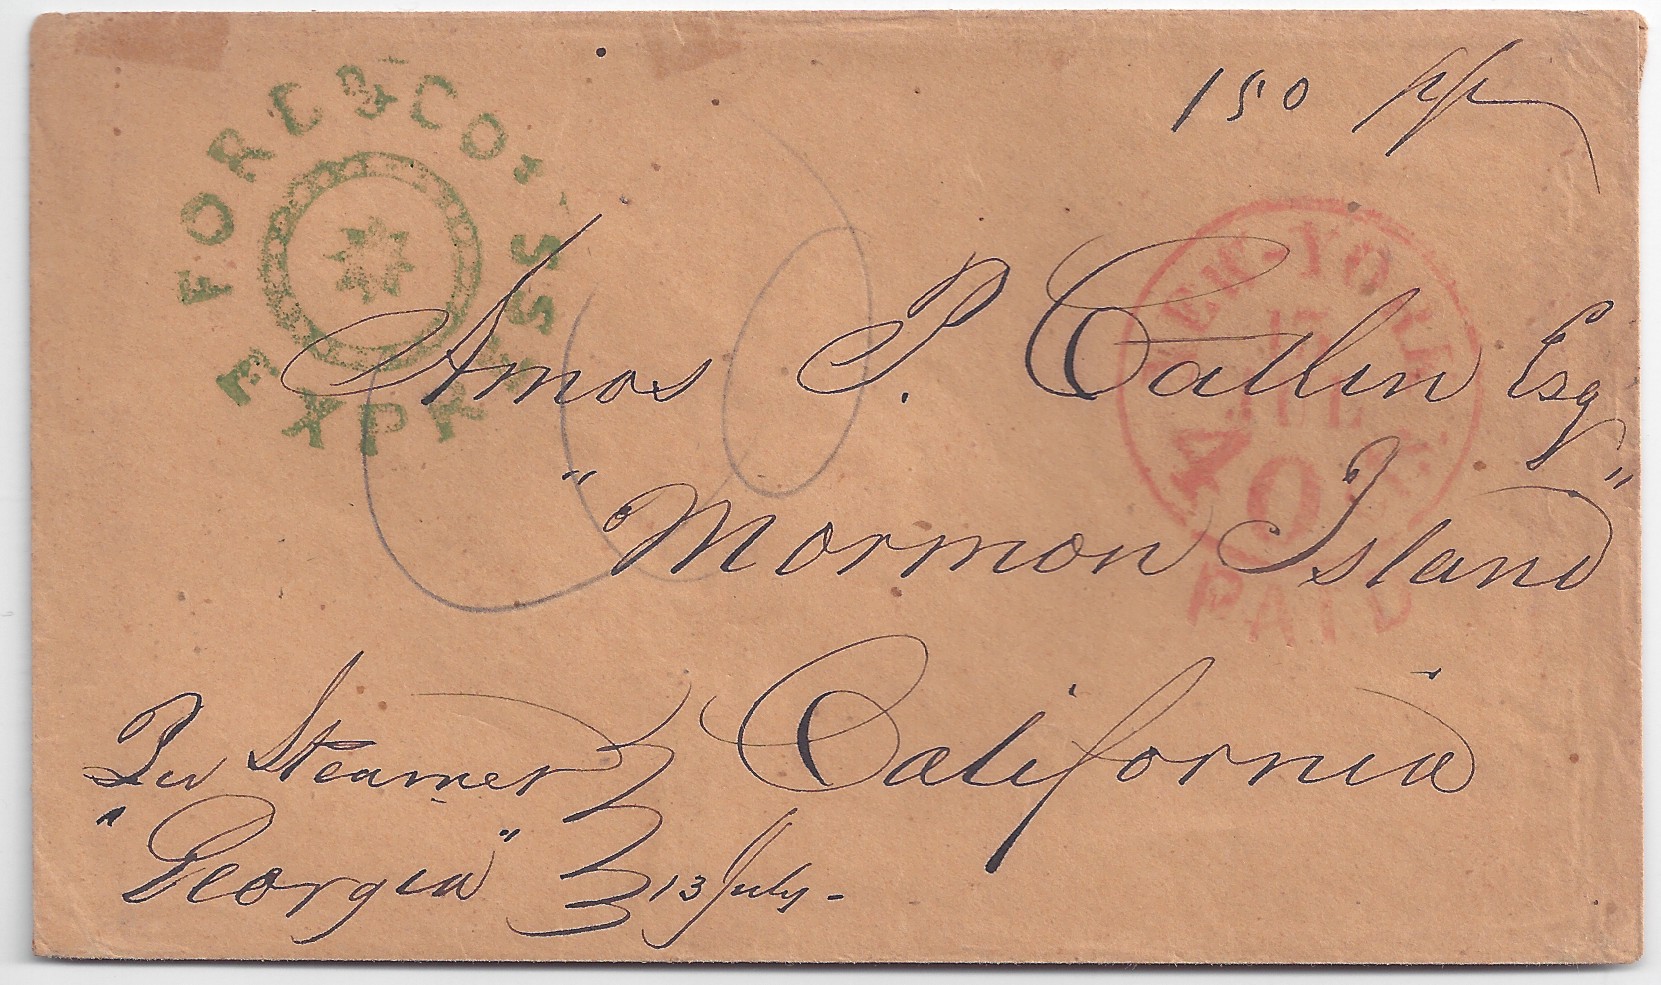 FORD & CO'S
EXPRESS
150
NEW-YORK
JUL
40
PAID
Amos P. Catlin Esq
"Mormon Island"
California
Per Steamer
"Georgia" 13 July.